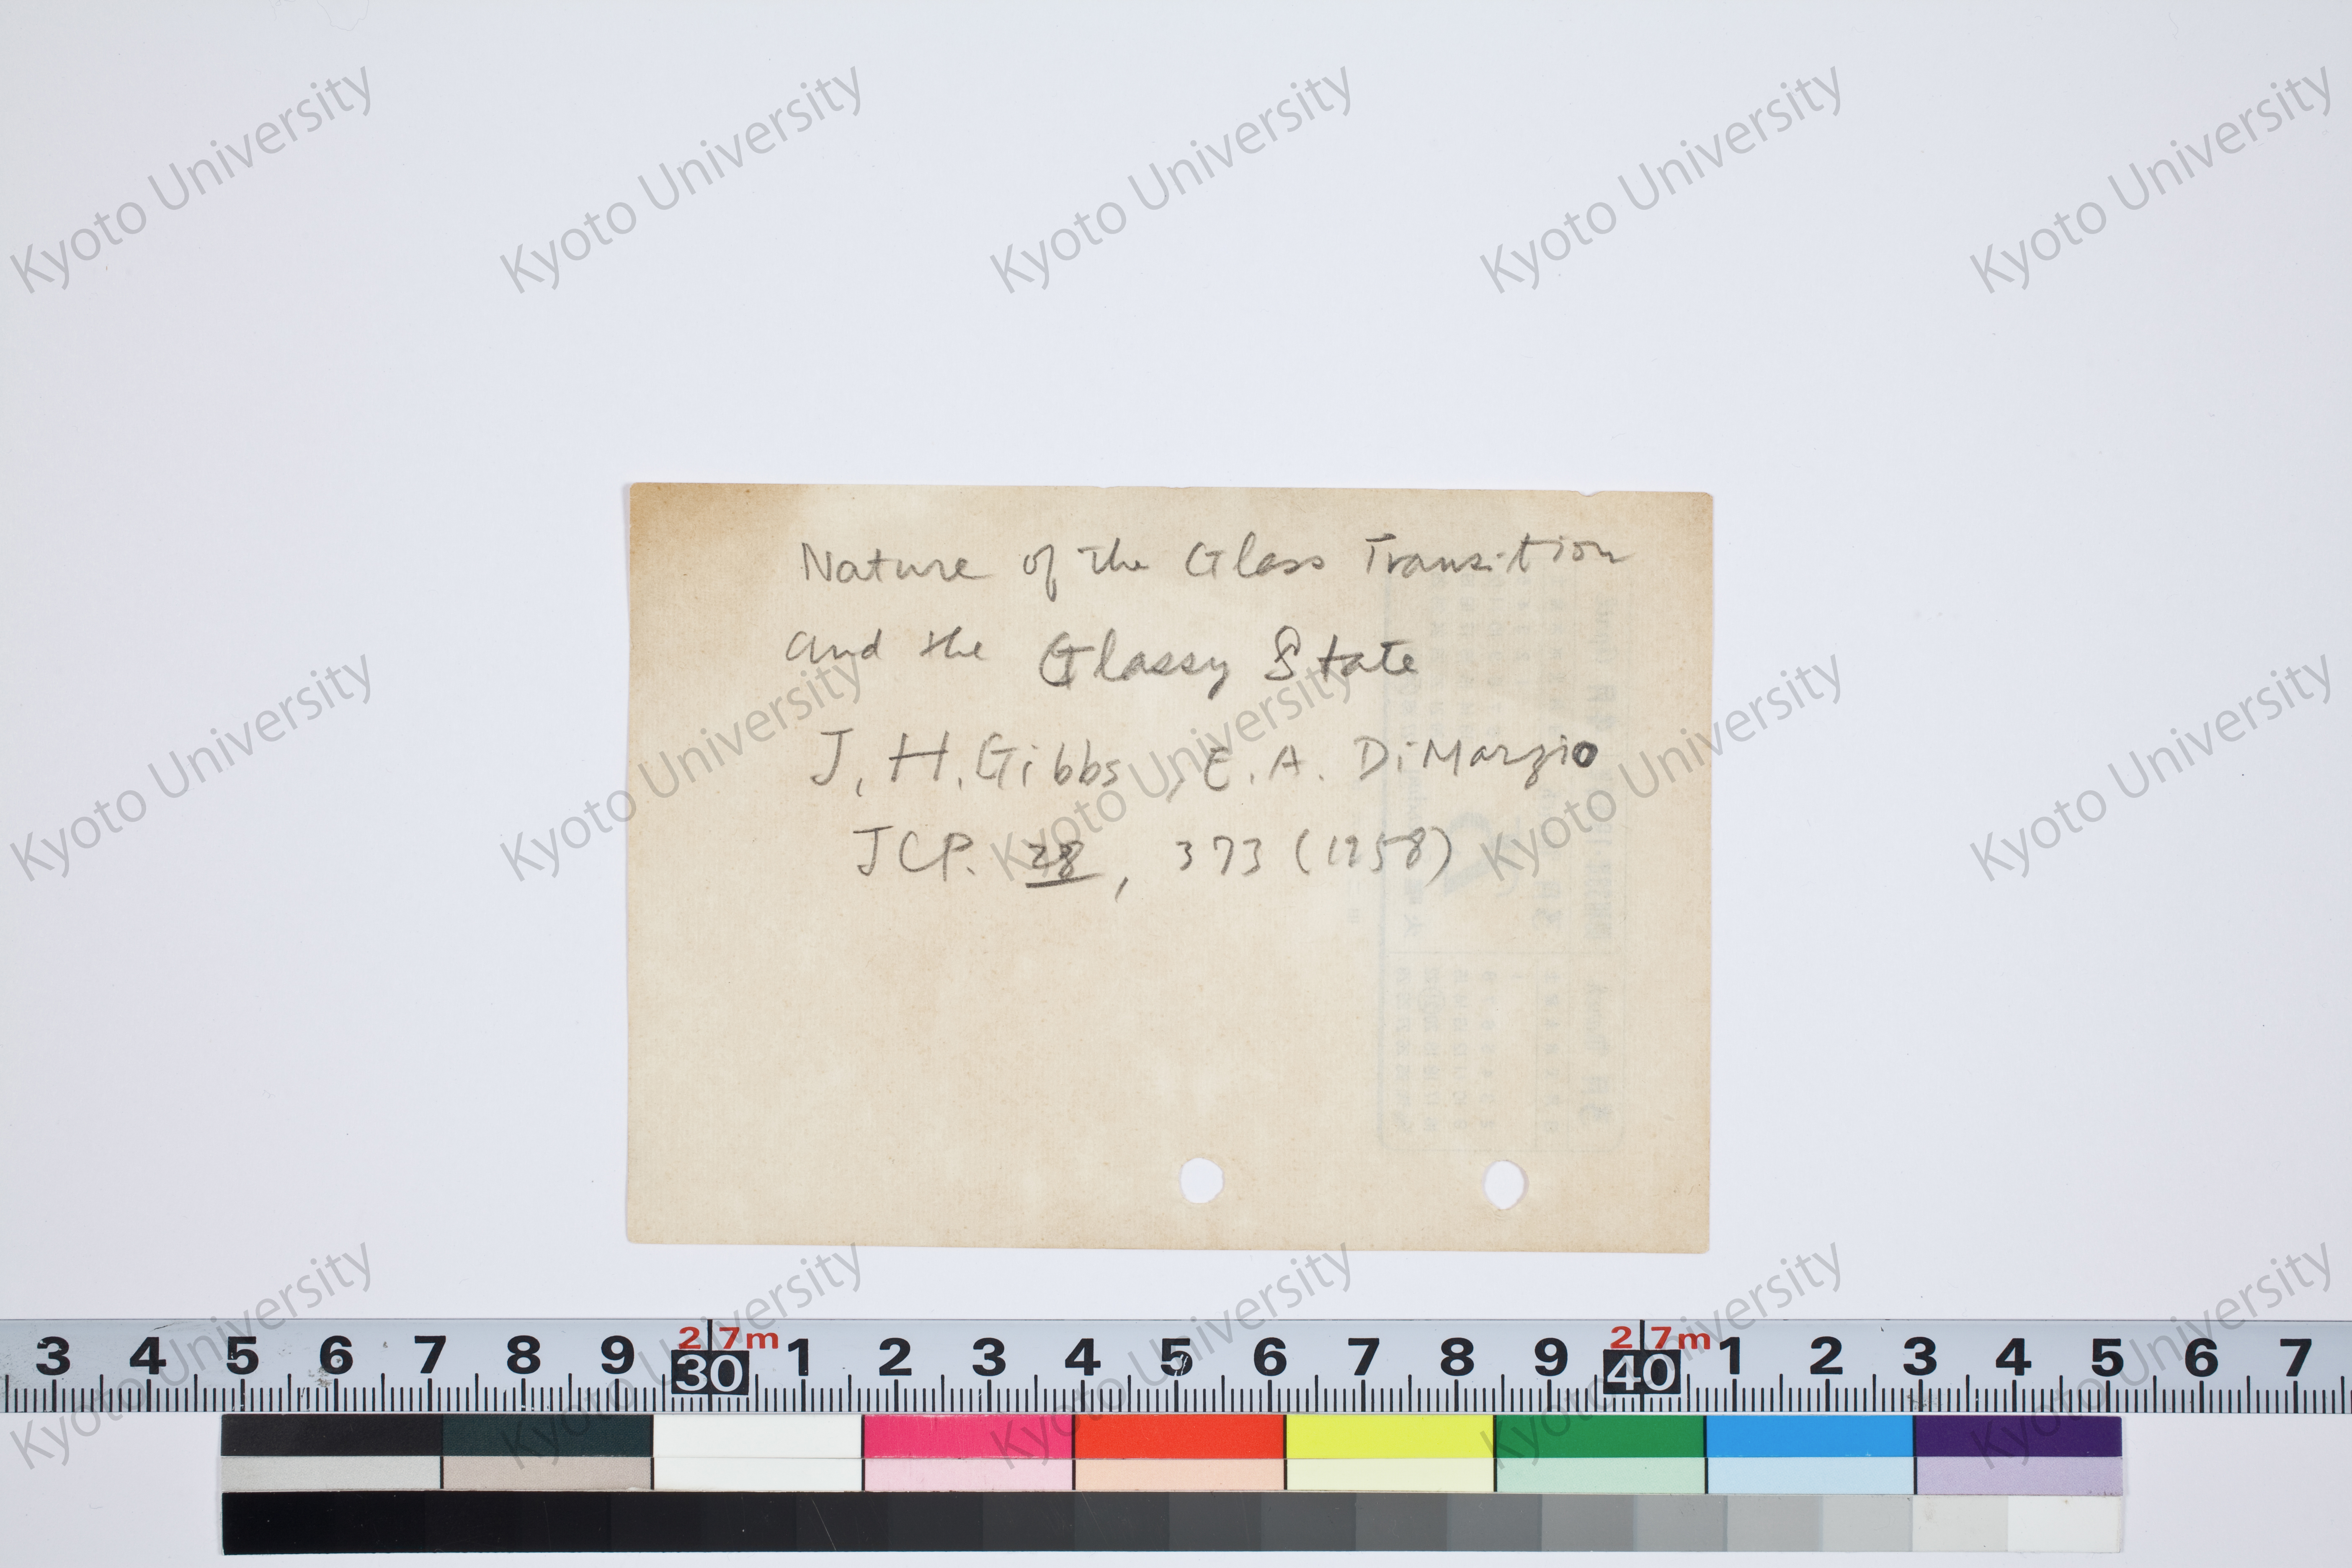 Nature of the Glass Transition
and the Glassy State
J, H. Gibbs, E. A. DiMarzio
JCP. 28, 373 (1958)
3 4 5 6 7 8 9 30 1 2 3 4 5 6 7 8 9 40 1 2 3 4 5 6 7
2.7m 2.7m
Kyoto University Kyoto University Kyoto University Kyoto University Kyoto University
Kyoto University Kyoto University Kyoto University Kyoto University Kyoto University
Kyoto University Kyoto University Kyoto University Kyoto University Kyoto University